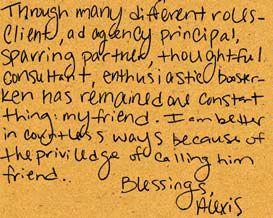 Through many different roles-
Client, ad agency principal,
sparring partner, thoughtful
consultant, enthusiastic booster-
Ken has remained one constant
thing: my friend. I am better
in countless ways because of
the priviledge of calling him
friend.
Blessings,
Alexis